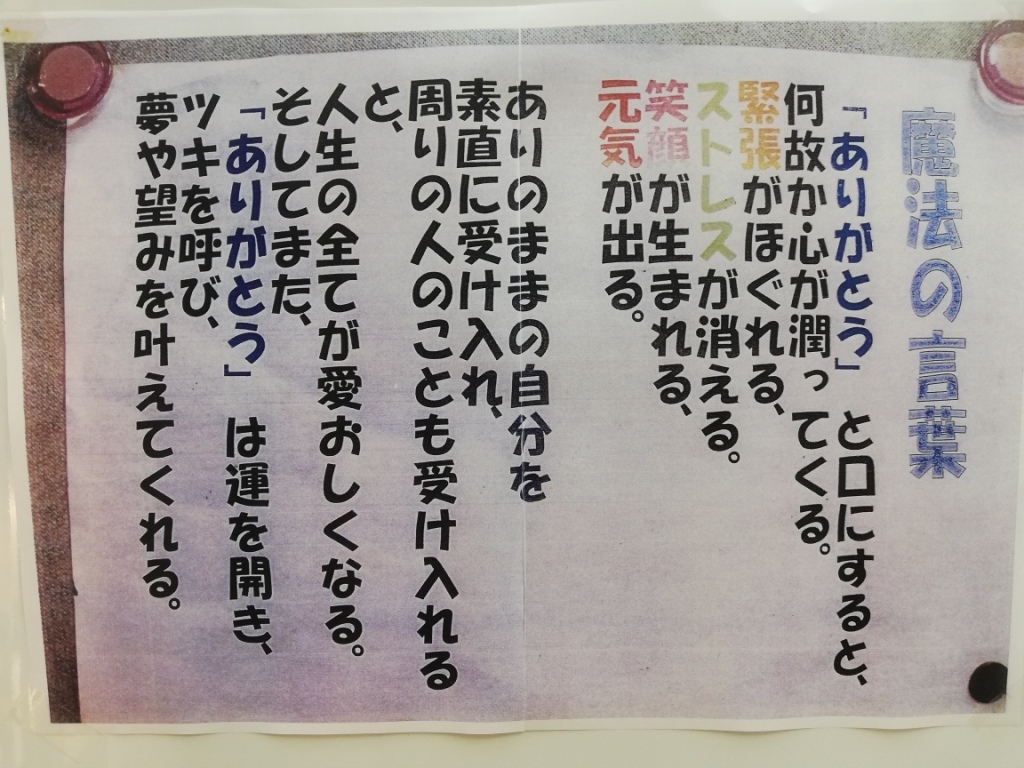 魔法の言葉
「ありがとう」と口にすると、
何故か心が潤ってくる。
緊張がほぐれる、
ストレスが消える。
笑顔が生まれる、
元気が出る。
ありのままの自分を
素直に受け入れ、
周りの人のことも受け入れる
と、
人生の全てが愛おしくなる。
そしてまた、
「ありがとう」は運を開き、
ツキを呼び、
夢や望みを叶えてくれる。